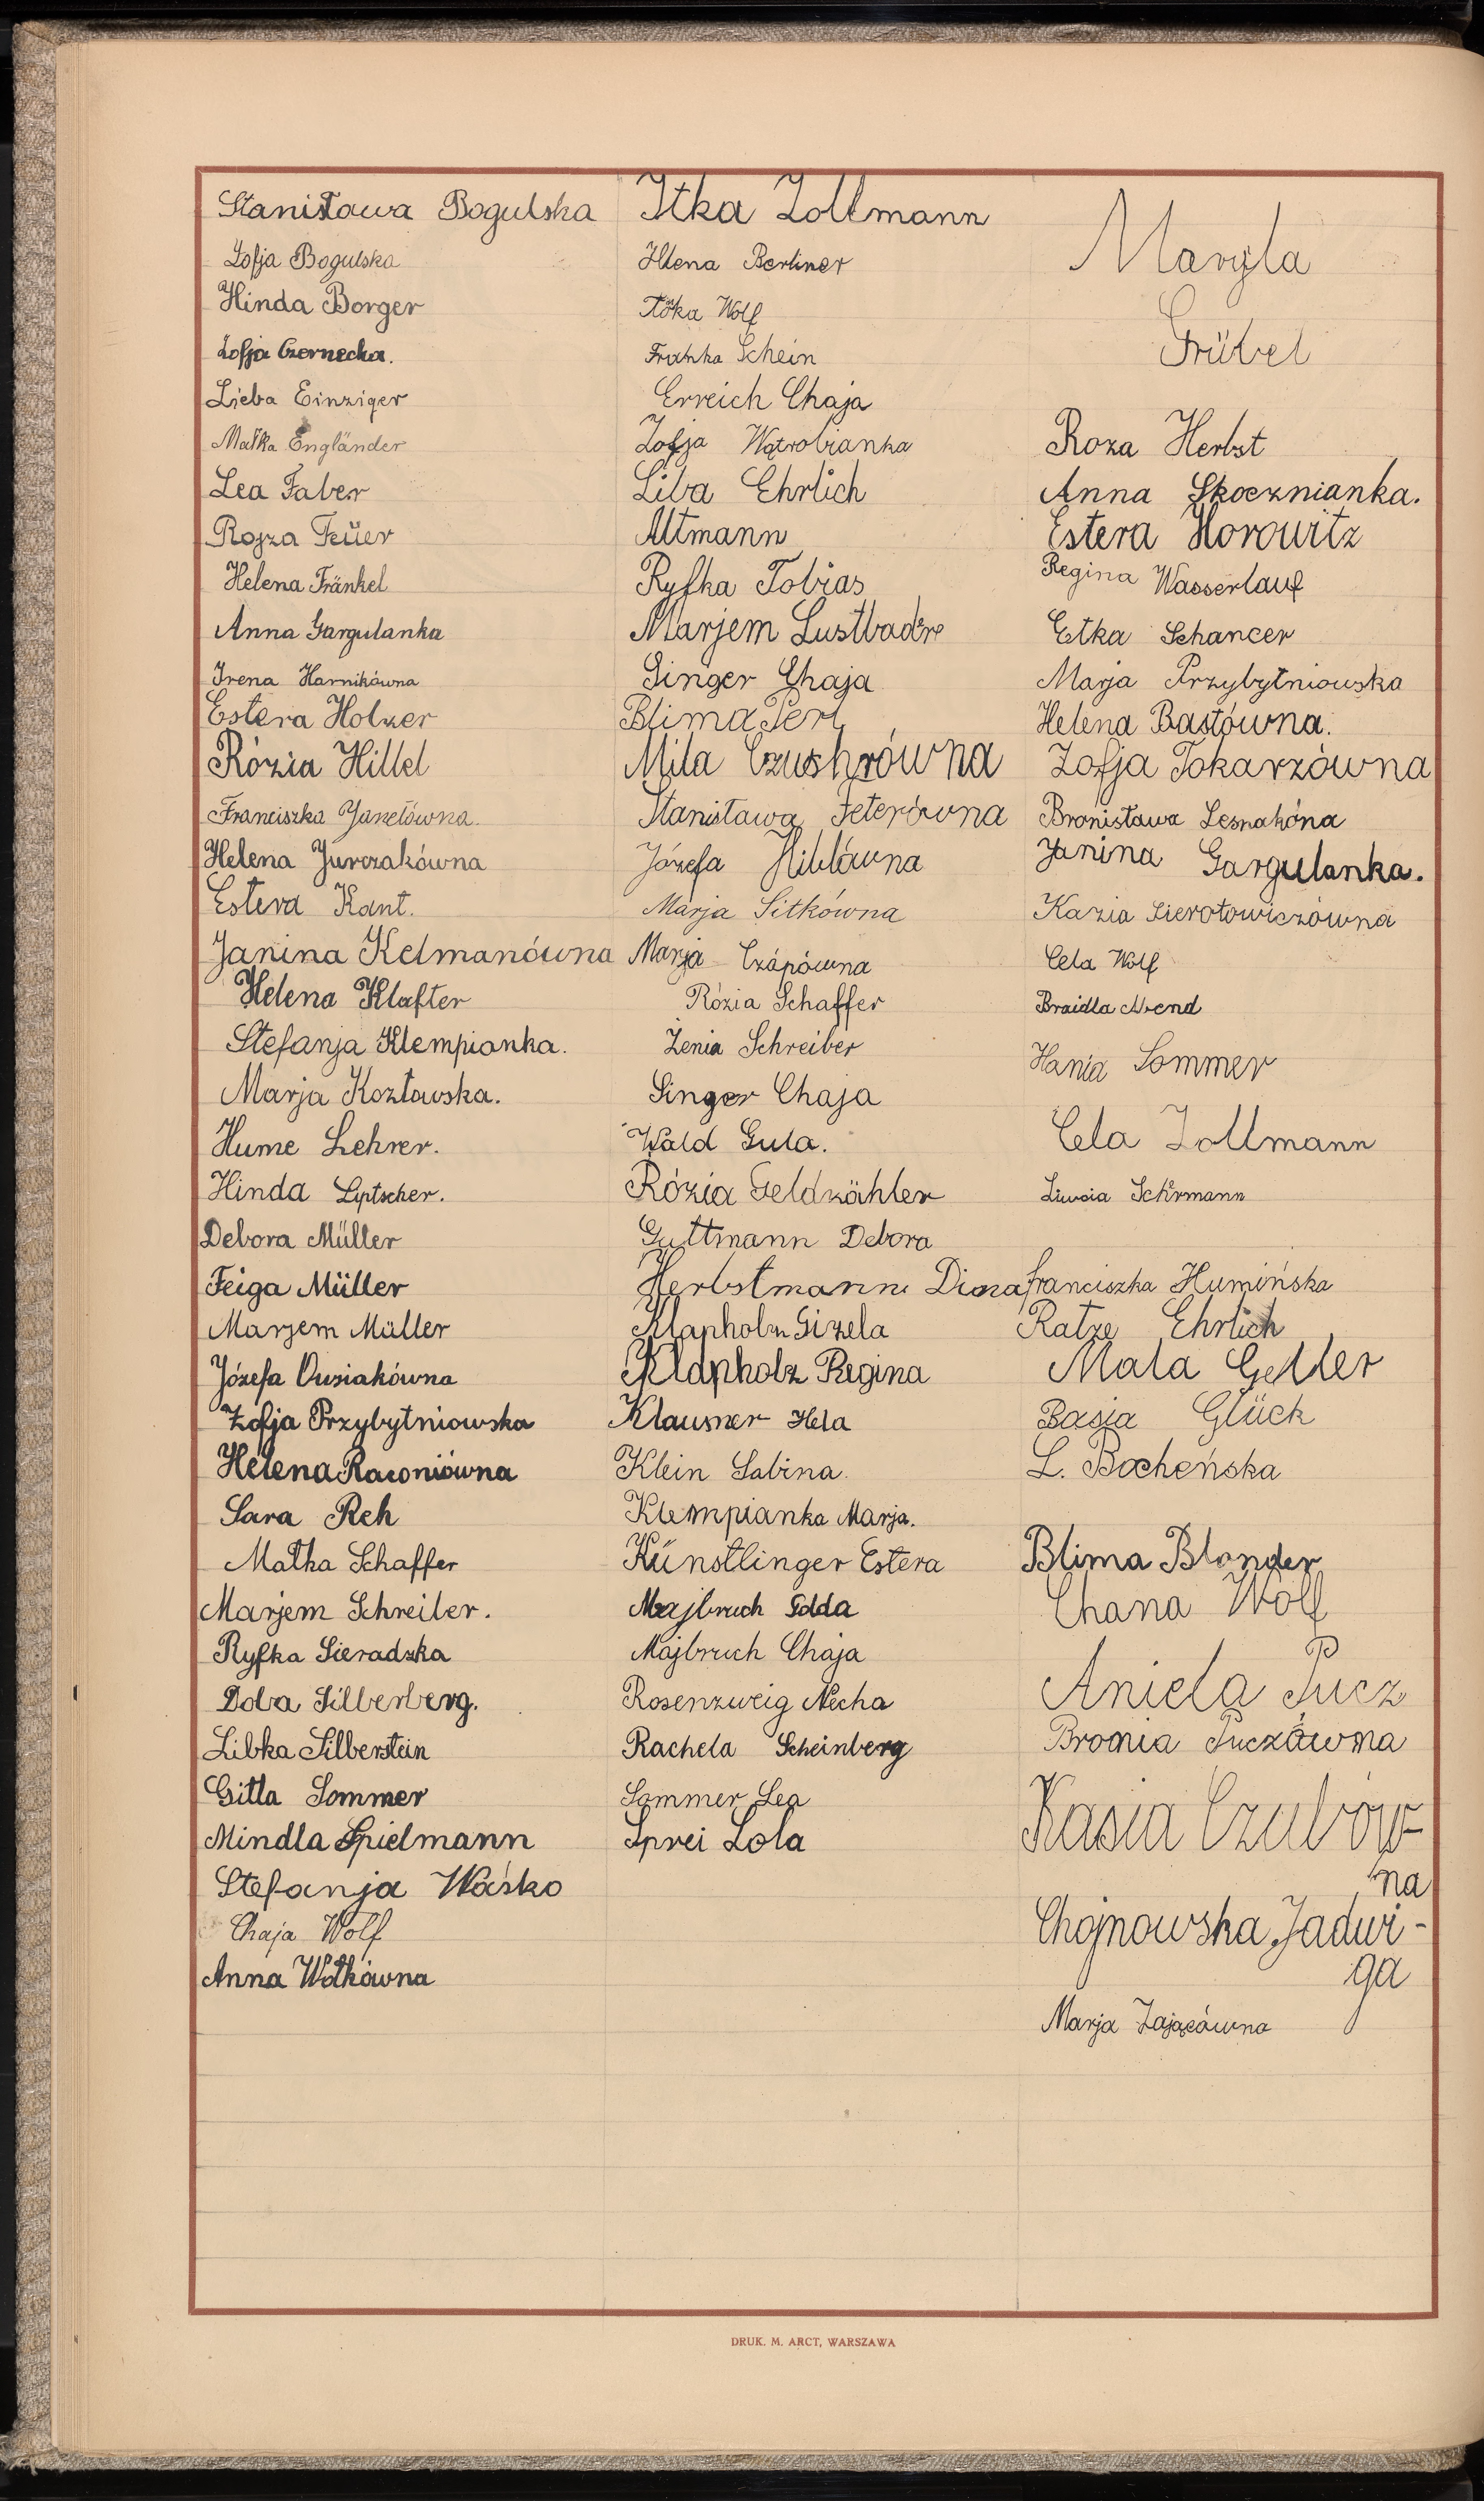 Stanisława Bogulska
Zofja Bogulska
Hinda Borger
Zofja Czernecka.
Lieba Einziger
Małka Engländer
Lea Faber
Rojza Feüer
Helena Fränkel
Anna Gargulanka
Irena Harnikówna
Estera Holzer
Rózia Hillel
Franciszka Janelówna.
Helena Jurczakówna
Estera Kant.
Janina Kelmanówna
Helena Klafter
Stefanja Klempianka.
Marja Kozłowska.
Hume Lehrer.
Hinda Liptscher.
Debora Müller
Feiga Müller
Marjem Müller
Józefa Ousiakówna
Zofja Przybytniowska
Helena Raconiówna
Sara Reh
Małka Schaffer
Marjem Schreiber.
Ryfka Sieradzka
Doba Silberberg.
Libka Silberstein
Gitla Sommer
Mindla Spielmann
Stefanja Waśko
Chaja Wolf
Anna Wołkówna
Itka Zollmann
Helena Berliner
Wolf
Franka Schein
Erreich Chaja
Zofja Wątrobianka
Liba Ehrlich
Altmann
Ryfka Tobias
Marjem Lustbader
Singer Chaja
Blima Perl
Mila Czushrówna
Stanisława Feterówna
Józefa Hiblówna
Marja Sitkówna
Marja Czápówna
Rózia Schaffer
Żenia Schreiber
Singer Chaja
Wald Gula.
Rózia Geldzähler
Guttmann Debora
Herbstmann Diona
Klapholz Gizela
Klapholz Regina
Klausner Hela
Klein Sabina.
Klempianka Marja.
Künstlinger Estera
Majbruch Edda
Majbruch Chaja
Rosenzweig Necha
Rachela Scheinberg
Sommer Lea
Sprei Lola
Maryla
Grübel
Roza Herbst
Anna Skocznianka.
Estera Horowitz
Regina Wasserlauf
Etka Schancer
Marja Przybytniowska
Helena Bastówna.
Zofja Tokarzówna
Bronisława Lesnakóna
Janina Gargulanka.
Kazia Sierotowiczówna
Cela Wolf
Braidla Arend
Hania Sommer
Cela Zollmann
Schirmann
Franciszka Humińska
Ratze Ehrlich
Mala Geller
Basia Glück
L. Bocheńska
Blima Blonder
Chana Wolf
Aniela Pucz
Bronia Puczówna
Kasia Czubów-
na
Chojnowska Jadwi-
ga
Marja Zającówna
DRUK. M. ARCT, WARSZAWA